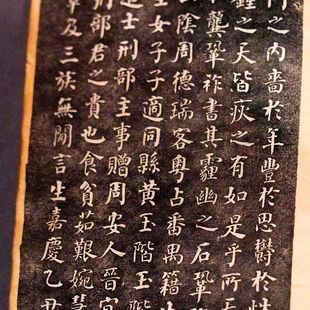 門之內嗇於年豐於思鬱於性
鍾之天皆疢之有如是乎所天
龔鞏祚書其霾幽之石鞏
陰周德瑞客粵占番禺籍生
女子子適同縣黃玉階玉階
進士刑部主事贈周安人晉宜
刑部君之貴也食貧茹艱婉慧
及三族無閒言生嘉慶乙丑